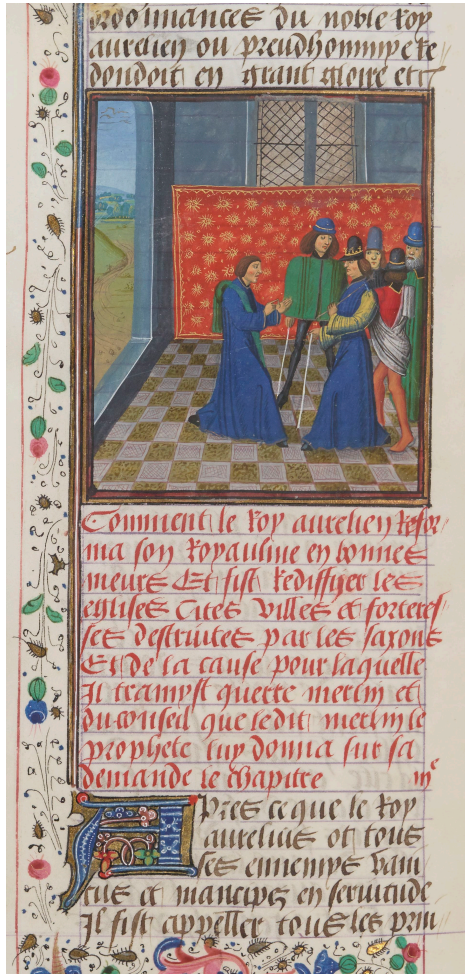 ordonnances du noble Roy
aurelien ou preudhommye Re
dondoit en grant gloire etc
Comment le Roy aurelien Refor
ma son Royaulme en bonnes
meurs Et fist Rediffyer les
eglises Cites villes et forteres
ses destruites par les saxons
Et de la cause pour laquelle
Il tramyst querre merlin et
du conseil que ledit merlin le
prophete luy donna sur sa
demande le chapitre iiie
Apres ce que le Roy
aurelius ot tous
ses ennemys vain
cus et mancipez en servitude
Il fist appeller tous les prin